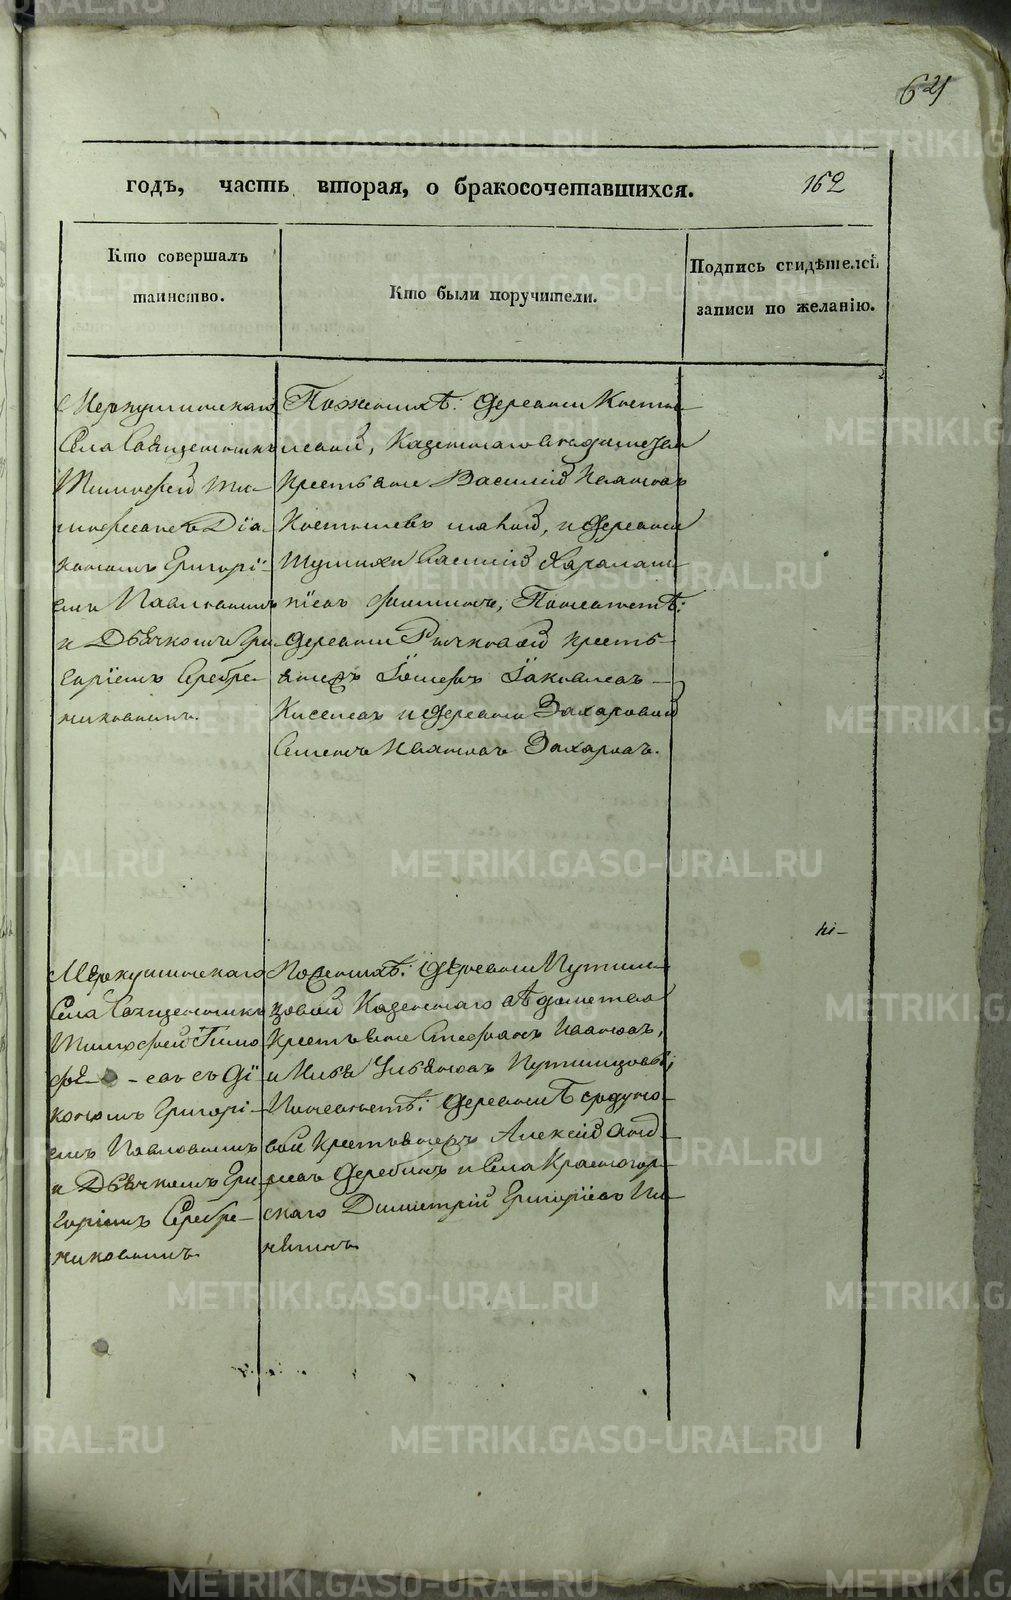 621
годъ, часть вторая, о бракосочетавшихся. 162
Кто совершалъ
таинство.
Кто были поручители.
Подпись свидѣтелей
записи по желанію.
Меркушинскаго
Села Священникъ
Тимофей Ти-
мофеевъ Дiа-
кономъ Григорi-
емъ Павловымъ
и Дьячкомъ Гри-
горiемъ Серебре-
никовымъ.
По женихѣ: деревни Косты-
левой, Казеннаго вѣдомства
крестьяне Василiй Ивановъ
Костылевъ и деревни
Василiй
По невѣстѣ:
деревни Рычковой кресть-
янедъ Iосифъ Iаковлевъ
Киселевъ и деревни Захаровой
Семенъ Ивановъ Захаровъ.
Меркушинскаго
Села Священникъ
Тимофей Тимо
фе - евъ съ Дi
кономъ Григорi-
емъ Павловымъ
и Дьячкомъ Гри-
горiемъ Серебре-
никовымъ
По женихѣ: деревни Путимцовой
Казеннаго вѣдомства
крестьяне Стефанъ Ивановъ,
и Илья Ульяновъ Путимцовы;
По невѣстѣ: деревни
крестьянедъ Алексiй Анд-
реевъ Дерябинъ и Села Красногор-
скаго Димитрiй Григорiевъ
METRIKI.GASO-URAL.RU